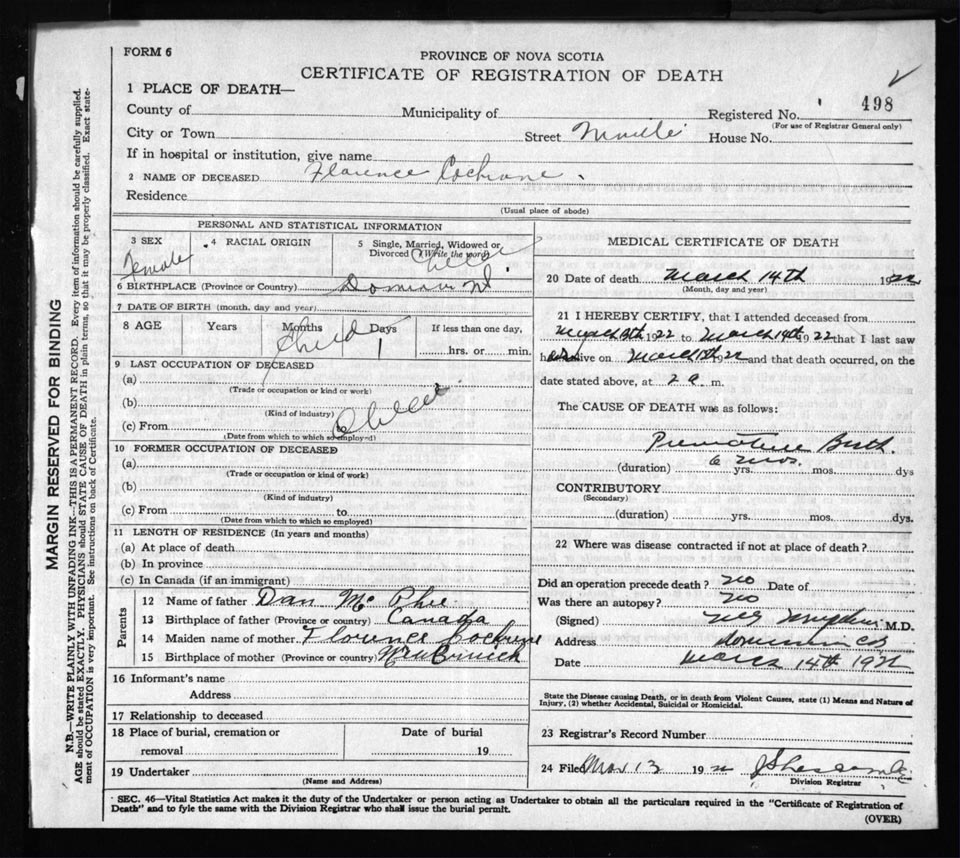 FORM 6
PROVINCE OF NOVA SCOTIA
CERTIFICATE OF REGISTRATION OF DEATH
1 PLACE OF DEATH—
County of Municipality of Registered No. 498
(For use of Registrar General only)
City or Town Street House No.
If in hospital or institution, give name
2 NAME OF DECEASED Florence Cochrane.
Residence
(Usual place of abode)
PERSONAL AND STATISTICAL INFORMATION
3 SEX Female
4 RACIAL ORIGIN
5 Single, Married, Widowed or Divorced (Write the word)
6 BIRTHPLACE (Province or Country) Dominion
7 DATE OF BIRTH (month, day and year)
8 AGE Years Months Days
Child 1
If less than one day,
hrs. or min.
9 LAST OCCUPATION OF DECEASED
(a)
(Trade or occupation or kind of work)
(b)
(Kind of industry)
(c) From to
(Date from which to which so employed)
10 FORMER OCCUPATION OF DECEASED
(a)
(Trade or occupation or kind of work)
(b)
(Kind of industry)
(c) From to
(Date from which to which so employed)
11 LENGTH OF RESIDENCE (In years and months)
(a) At place of death
(b) In province
(c) In Canada (if an immigrant)
Parents
12 Name of father Dan Mc Phee
13 Birthplace of father (Province or country) Canada
14 Maiden name of mother Florence Cochrane
15 Birthplace of mother (Province or country)
16 Informant's name
Address
17 Relationship to deceased
18 Place of burial, cremation or removal
Date of burial
19
19 Undertaker
(Name and Address)
MEDICAL CERTIFICATE OF DEATH
20 Date of death March 14th 1922
(Month, day and year)
21 I HEREBY CERTIFY, that I attended deceased from
1922 to March 14th 1922 that I last saw
h alive on March 1922 and that death occurred, on the
date stated above, at 2 a m.
The CAUSE OF DEATH was as follows:
Premature Birth.
6 mos.
(duration) yrs. mos. dys
CONTRIBUTORY
(Secondary)
(duration) yrs. mos. dys.
22 Where was disease contracted if not at place of death?
Did an operation precede death? no Date of
Was there an autopsy? no
(Signed) M.D.
Address Dominion C B
Date March 14th 1922
State the Disease causing Death, or in death from Violent Causes, state (1) Means and Nature of
Injury, (2) whether Accidental, Suicidal or Homicidal.
23 Registrar's Record Number
24 Filed Mar 13 1922
Division Registrar
SEC. 46—Vital Statistics Act makes it the duty of the Undertaker or person acting as Undertaker to obtain all the particulars required in the "Certificate of Registration of
Death" and to fyle the same with the Division Registrar who shall issue the burial permit.
(OVER)
MARGIN RESERVED FOR BINDING
N.B.—WRITE PLAINLY WITH UNFADING INK—THIS IS A PERMANENT RECORD. Every item of information should be carefully supplied.
AGE should be stated EXACTLY. PHYSICIANS should STATE CAUSE OF DEATH in plain terms, so that it may be properly classified. Exact state-
ment of OCCUPATION is very important. See instructions on back of Certificate.